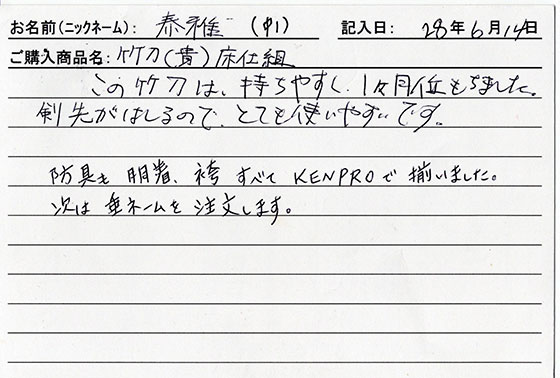 お名前(ニックネーム): 泰雅 (中1) 記入日: 28年6月14日
ご購入商品名: 竹刀(貴)床仕組
この竹刀は、持ちやすく、1ヶ月位もちました。
剣先がはしるので、とても使いやすいです。
防具も 胴着、袴 すべて KENPROで 揃いました。
次は 垂ネームを 注文します。